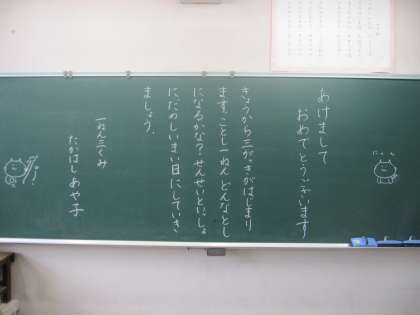 あけまして
おめでとうございます
きょうから三がっきがはじまり
ます。ことし一ねん、どんなとし
になるかな?せんせいといっしょ
に、たのしいまい日にしていき
ましょう。
一ねん三くみ
たかはし あや子